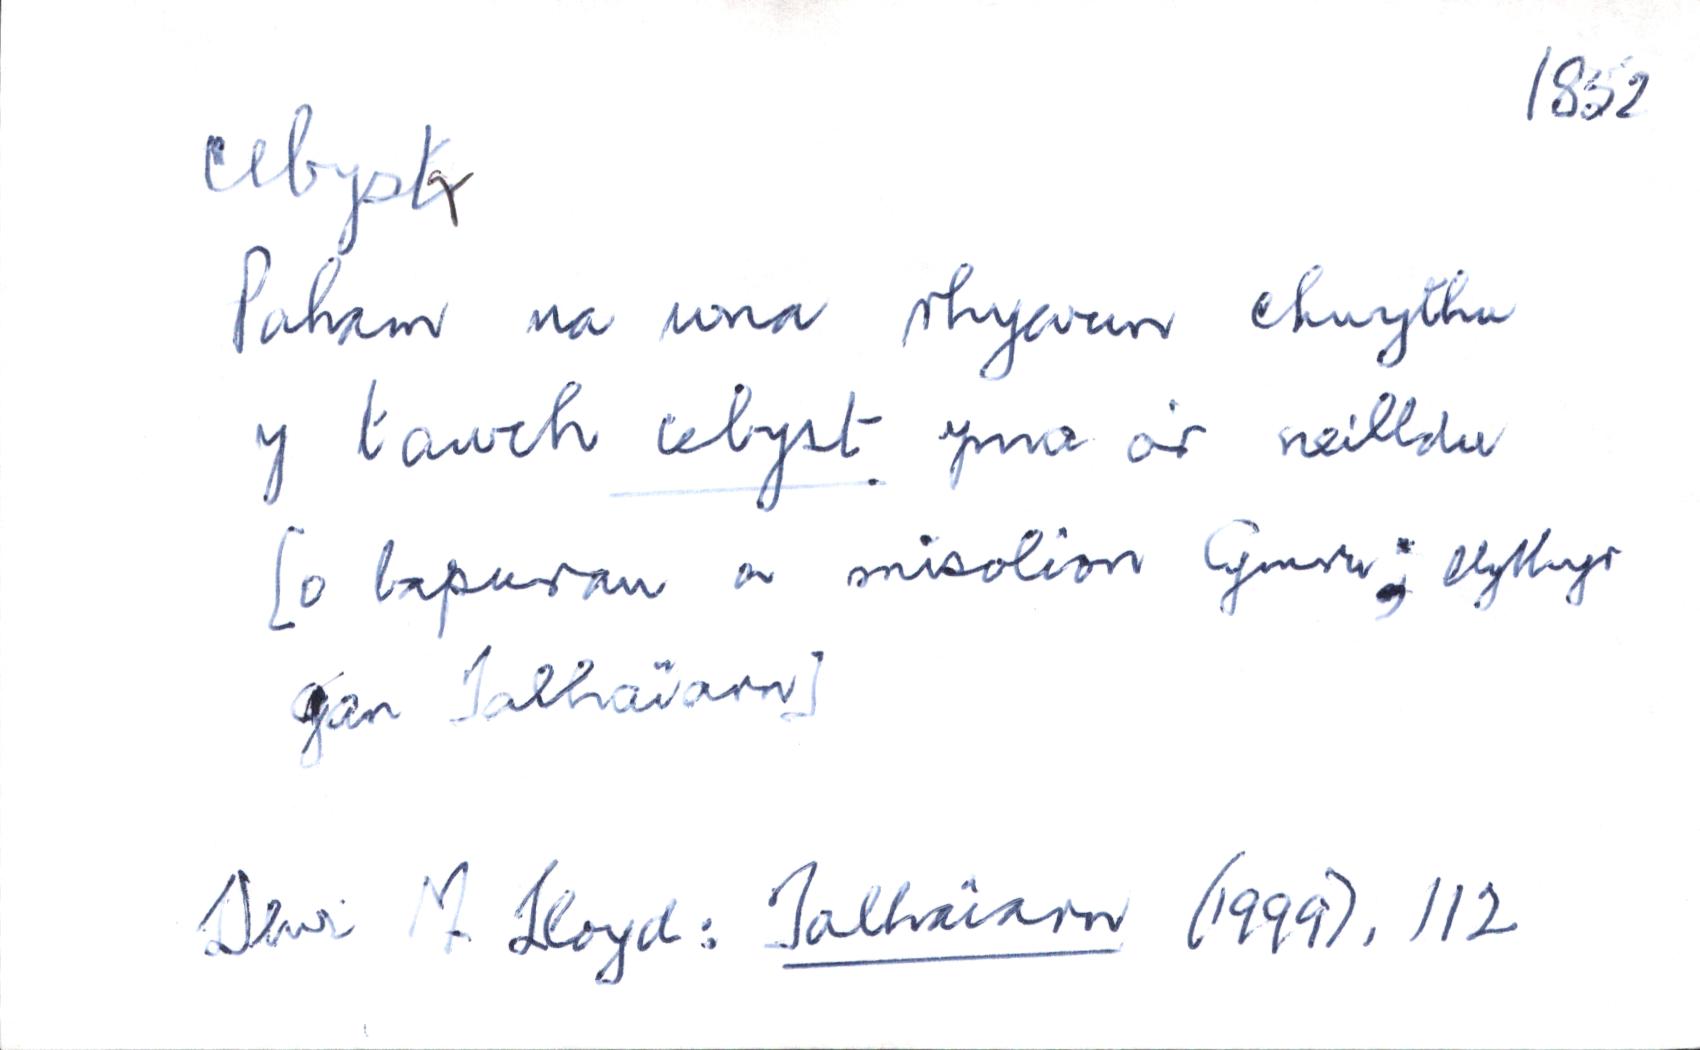 1852
cebystr
Paham na wna rhywun chwythu
y tawch cebyst yma o'r neilldu
[o bapurau a misolion Cymru; llythyr
gan Talhaiarn]
Dewi M Lloyd: Talhaiarn (1999), 112